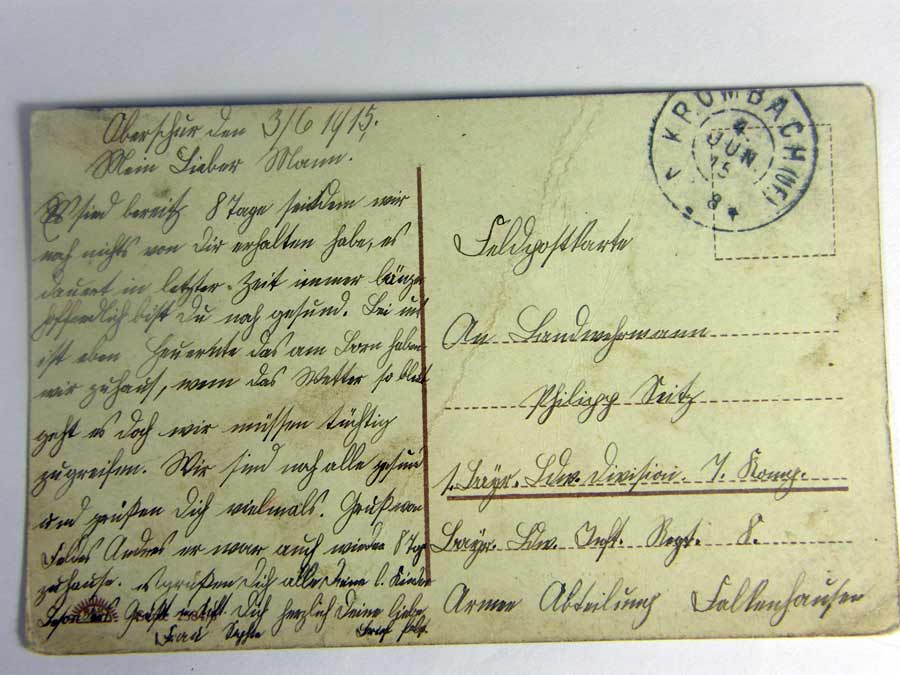 Oberschur den 3/6 1915.
Mein Lieber Mann.
sind bereitz 8 Tage seitdem wir
noch nichts von Dir erhalten habe, es
dauert in letzter Zeit immer länger
hoffendlich bist Du noch gesund. Bei uns
ist eben Heuernte das am Born haben
wir zuhaus, wenn das Wetter so bleibt
geht es doch wir müssen tüchtig
zugreifen. Wir sind noch alle gesund
und grüßen Dich vielmals. Gruß von
Andres er war auch wieder 8 Tag
zuhause. es grüßen Dich alle Deine l. Kinder
Gruß Dich herzlich Deine liebe
Frau
KRUMBACH (UF)
4
JUN
15
8
Feldpostkarte
An Landwehrmann
Philipp Seitz
1. Bayr. Ldw. Division. 7. Komp.
Bayr. Ldw. Inft. Regt. 8.
Armee Abteilung Falkenhausen